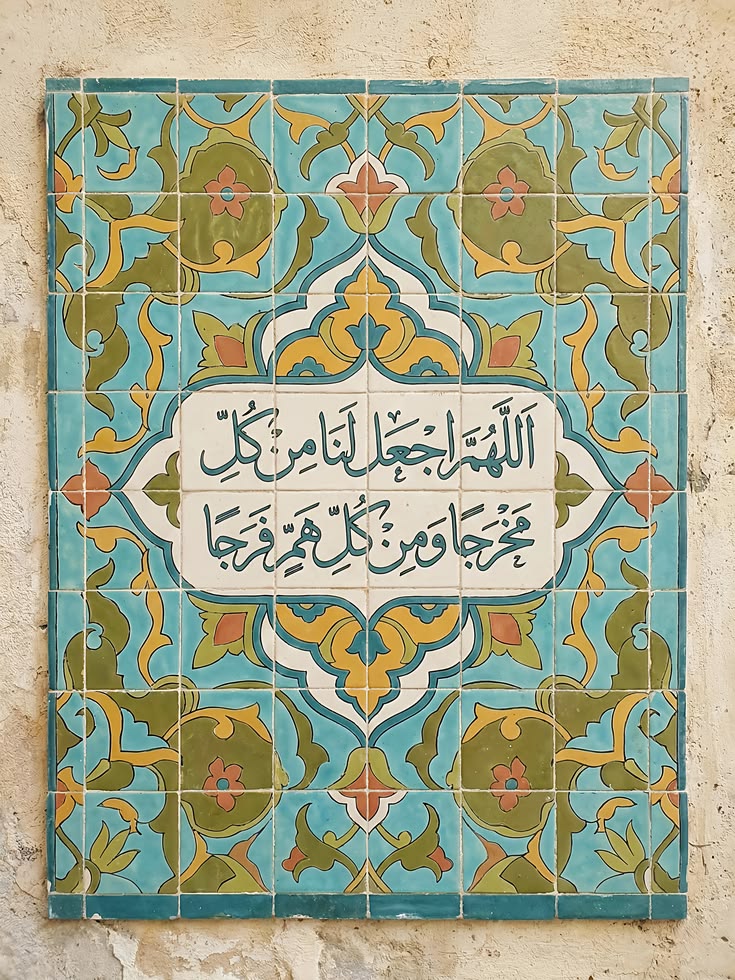 اَللَّهُمَّ اجْعَل لَنَا مِنْ كُلِّ
مَخْرَجًا وَمِنْ كُلِّ هَمٍّ فَرَجًا